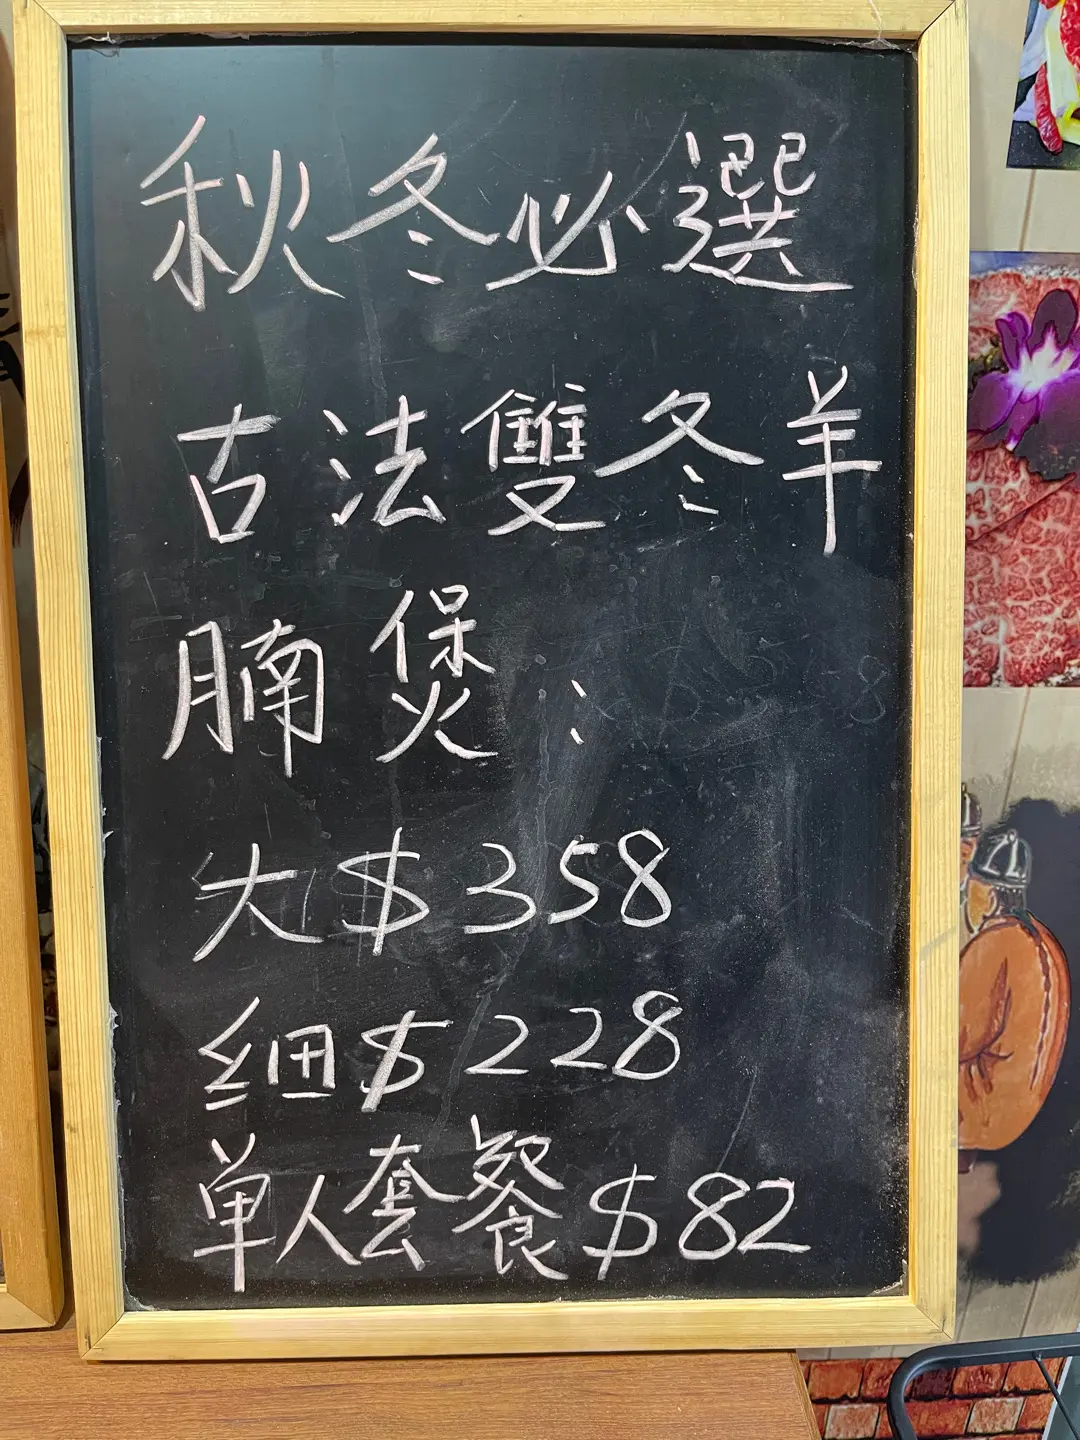 秋冬必選
古法雙冬羊
腩煲：
大$358
细$228
单人套餐$82